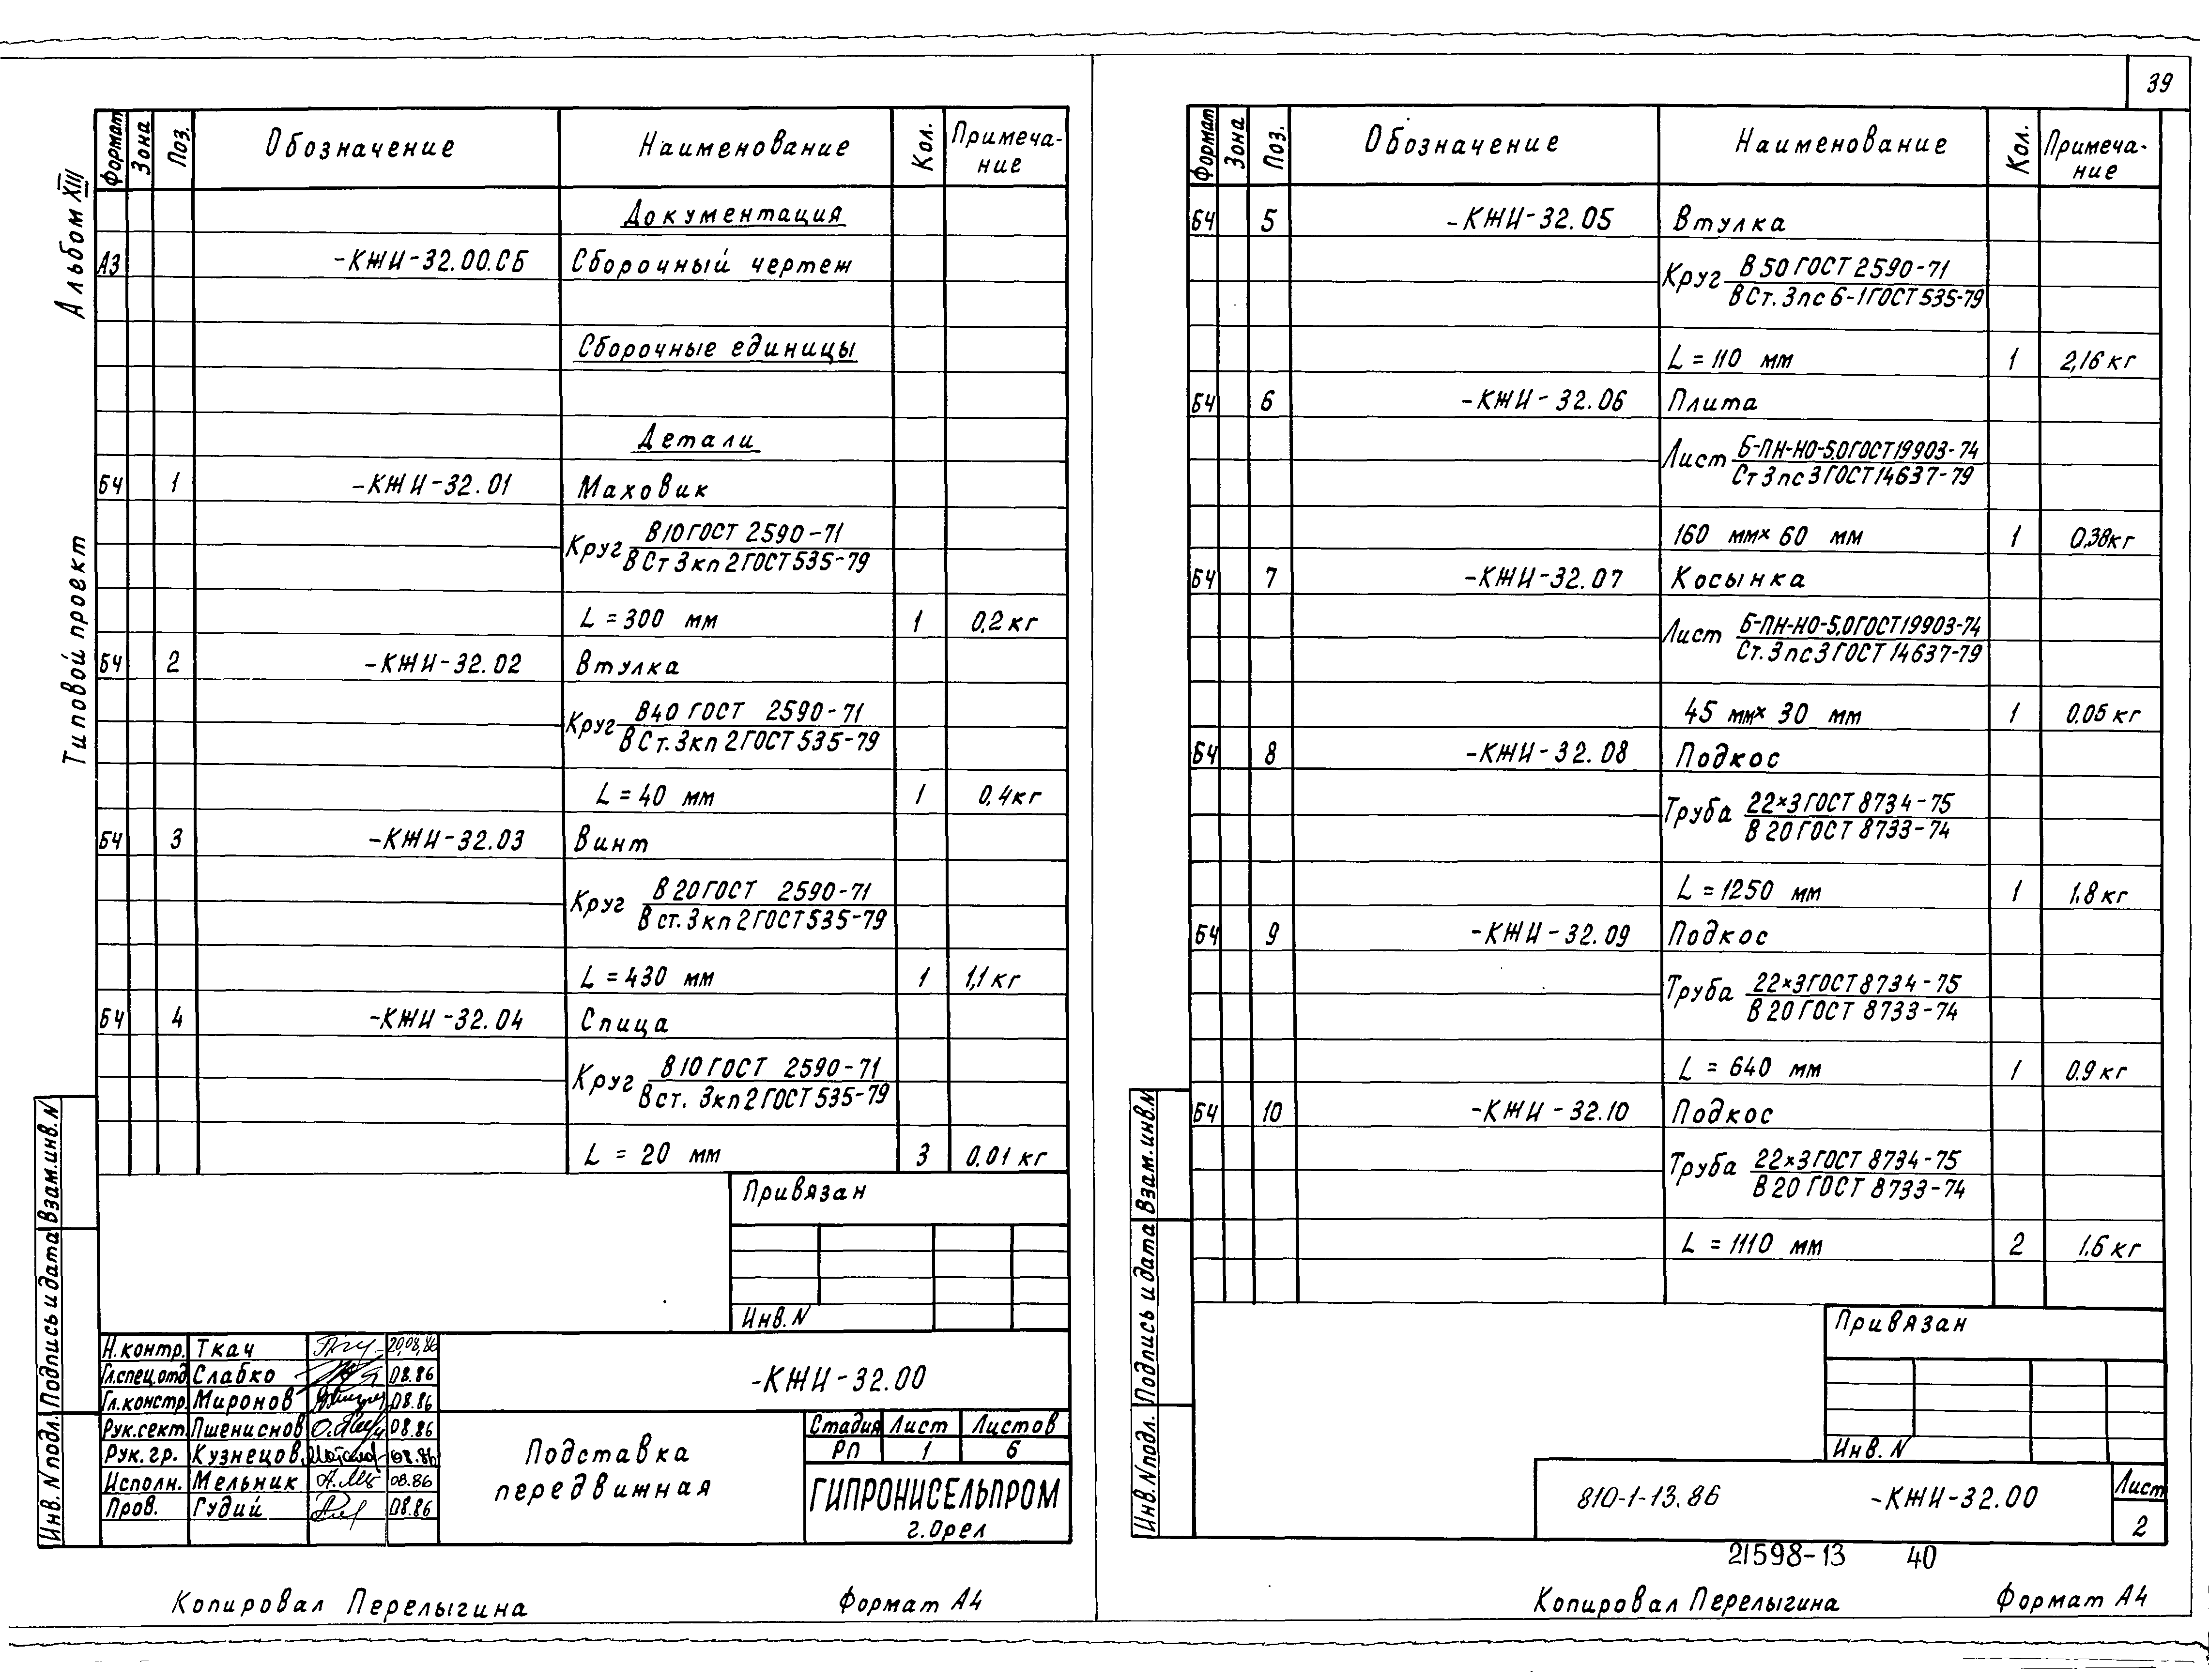 39
Альбом XIII
Типовой проект
Формат Зона Поз. Обозначение Наименование Кол. Примеча-
ние
Документация
А3 -КЖИ-32.00.СБ Сборочный чертеж
Сборочные единицы
Детали
БЧ 1 -КЖИ-32.01 Маховик
Круг В10 ГОСТ 2590-71
В Ст 3кп 2 ГОСТ 535-79
L = 300 мм 1 0,2 кг
БЧ 2 -КЖИ-32.02 Втулка
Круг В40 ГОСТ 2590-71
В Ст. 3кп 2 ГОСТ 535-79
L = 40 мм 1 0,4 кг
БЧ 3 -КЖИ-32.03 Винт
Круг В 20 ГОСТ 2590-71
В ст. 3кп 2 ГОСТ 535-79
L = 430 мм 1 1,1 кг
БЧ 4 -КЖИ-32.04 Спица
Круг В 10 ГОСТ 2590-71
В ст. 3кп 2 ГОСТ 535-79
L = 20 мм 3 0.01 кг
Привязан
Инв. N
Взам. инв. N
Подпись и дата
Инв. N подл.
Н.контр. Ткач 20.08.86
Гл.спец.отд Слабко 08.86
Гл.констр. Миронов 08.86
Рук.сект. Пшениснов 08.86
Рук. гр. Кузнецов 08.86
Исполн. Мельник 08.86
Пров. Гудий 08.86
-КЖИ-32.00
Подставка
передвижная
Стадия Лист Листов
РП 1 6
ГИПРОНИСЕЛЬПРОМ
г. Орел
Копировал Перелыгина Формат А4
Формат Зона Поз. Обозначение Наименование Кол. Примеча-
ние
БЧ 5 -КЖИ-32.05 Втулка
Круг В 50 ГОСТ 2590-71
В Ст. 3 пс 6-1 ГОСТ 535-79
L = 110 мм 1 2,16 кг
БЧ 6 -КЖИ-32.06 Плита
Лист Б-ПН-НО-5,0 ГОСТ 19903-74
Ст 3 пс 3 ГОСТ 14637-79
160 мм x 60 мм 1 0,38 кг
БЧ 7 -КЖИ-32.07 Косынка
Лист Б-ПН-НО-5,0 ГОСТ 19903-74
Ст. 3 пс 3 ГОСТ 14637-79
45 мм x 30 мм 1 0.05 кг
БЧ 8 -КЖИ-32.08 Подкос
Труба 22x3 ГОСТ 8734-75
В 20 ГОСТ 8733-74
L = 1250 мм 1 1.8 кг
БЧ 9 -КЖИ-32.09 Подкос
Труба 22x3 ГОСТ 8734-75
В 20 ГОСТ 8733-74
L = 640 мм 1 0.9 кг
БЧ 10 -КЖИ-32.10 Подкос
Труба 22x3 ГОСТ 8734-75
В 20 ГОСТ 8733-74
L = 1110 мм 2 1.6 кг
Привязан
Инв. N
Взам. инв. N
Подпись и дата
Инв. N подл.
810-1-13.86 -КЖИ-32.00 Лист
2
21598-13 40
Копировал Перелыгина Формат А4